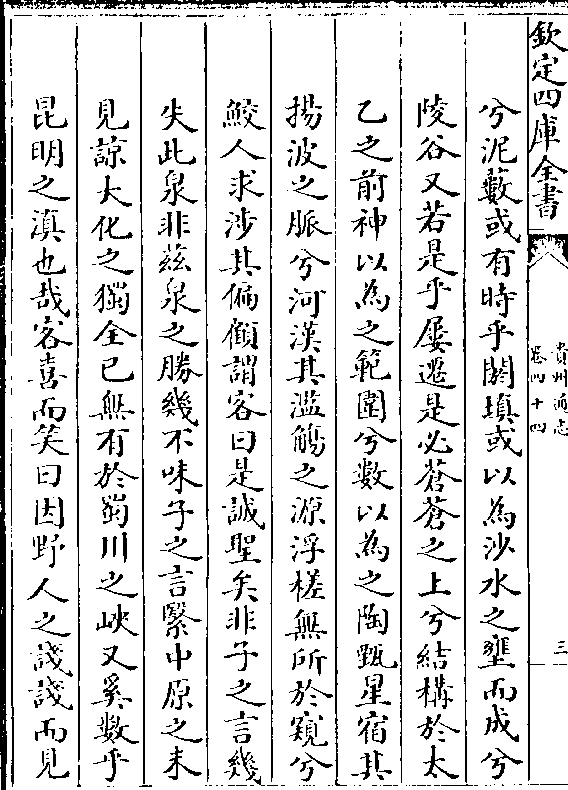 欽定四庫全書
貴州通志
卷四十四
三
兮泥藪或有時乎閼塡或以為沙水之壅而成兮
陵谷又若是乎屢遷是必蒼蒼之上兮結構於太
乙之前神以為之範圍兮數以為之陶甄星宿其
揚波之脈兮河漢其濫觴之源浮槎無所於窺兮
鮫人求涉其偏顧謂客曰是誠聖矣非子之言幾
失此泉非兹泉之勝幾不味子之言緊中原之未
見諒大化之獨全已無有於蜀川之峽又奚數乎
昆明之滇也哉客喜而笑曰因野人之諓諓而見